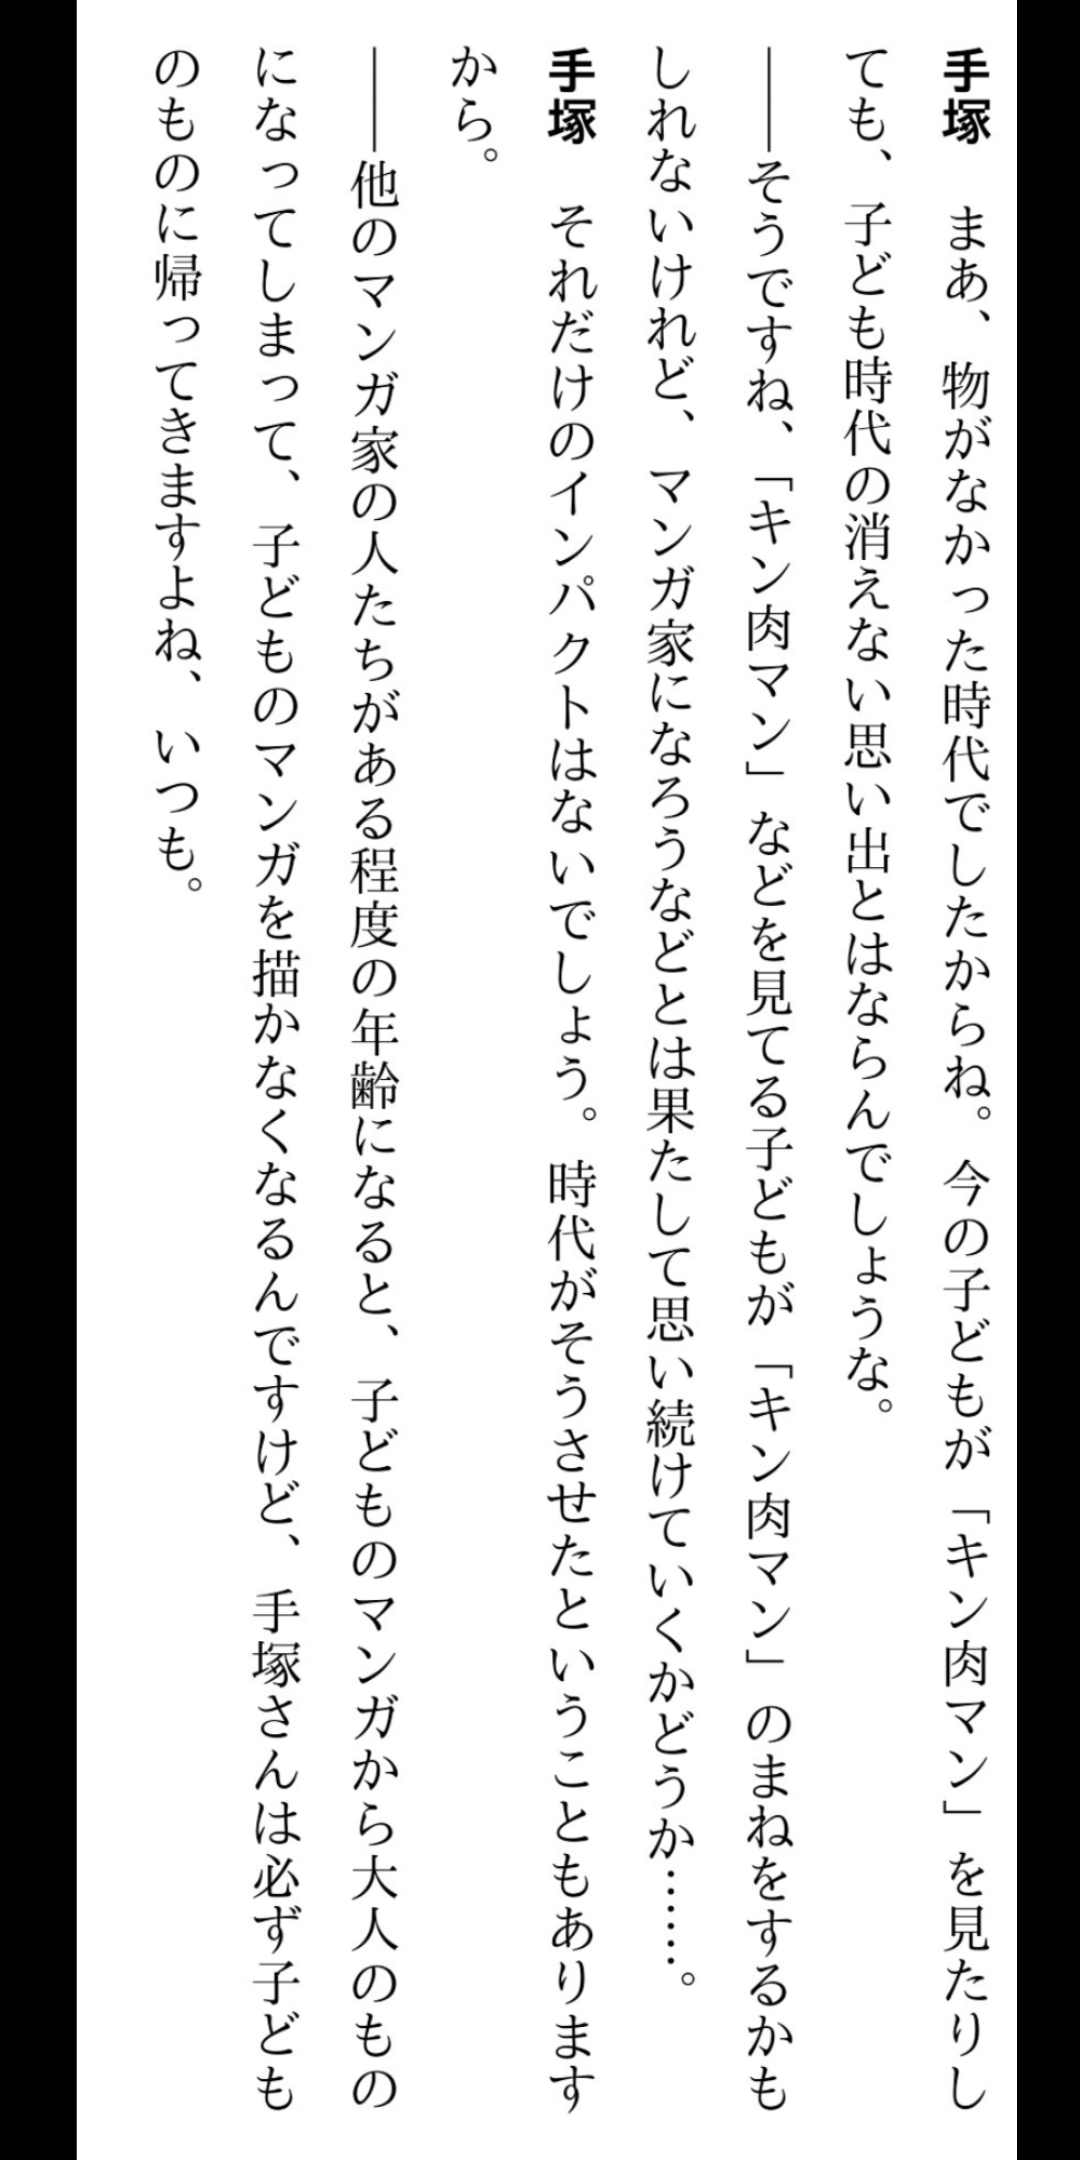 手塚　まあ、物がなかった時代でしたからね。今の子どもが「キン肉マン」を見たりし
ても、子ども時代の消えない思い出とはならんでしょうな。
――そうですね、「キン肉マン」などを見てる子どもが「キン肉マン」のまねをするかも
しれないけれど、マンガ家になろうなどとは果たして思い続けていくかどうか……。
手塚　それだけのインパクトはないでしょう。時代がそうさせたということもあります
から。
――他のマンガ家の人たちがある程度の年齢になると、子どものマンガから大人のもの
になってしまって、子どものマンガを描かなくなるんですけど、手塚さんは必ず子ども
のものに帰ってきますよね、いつも。